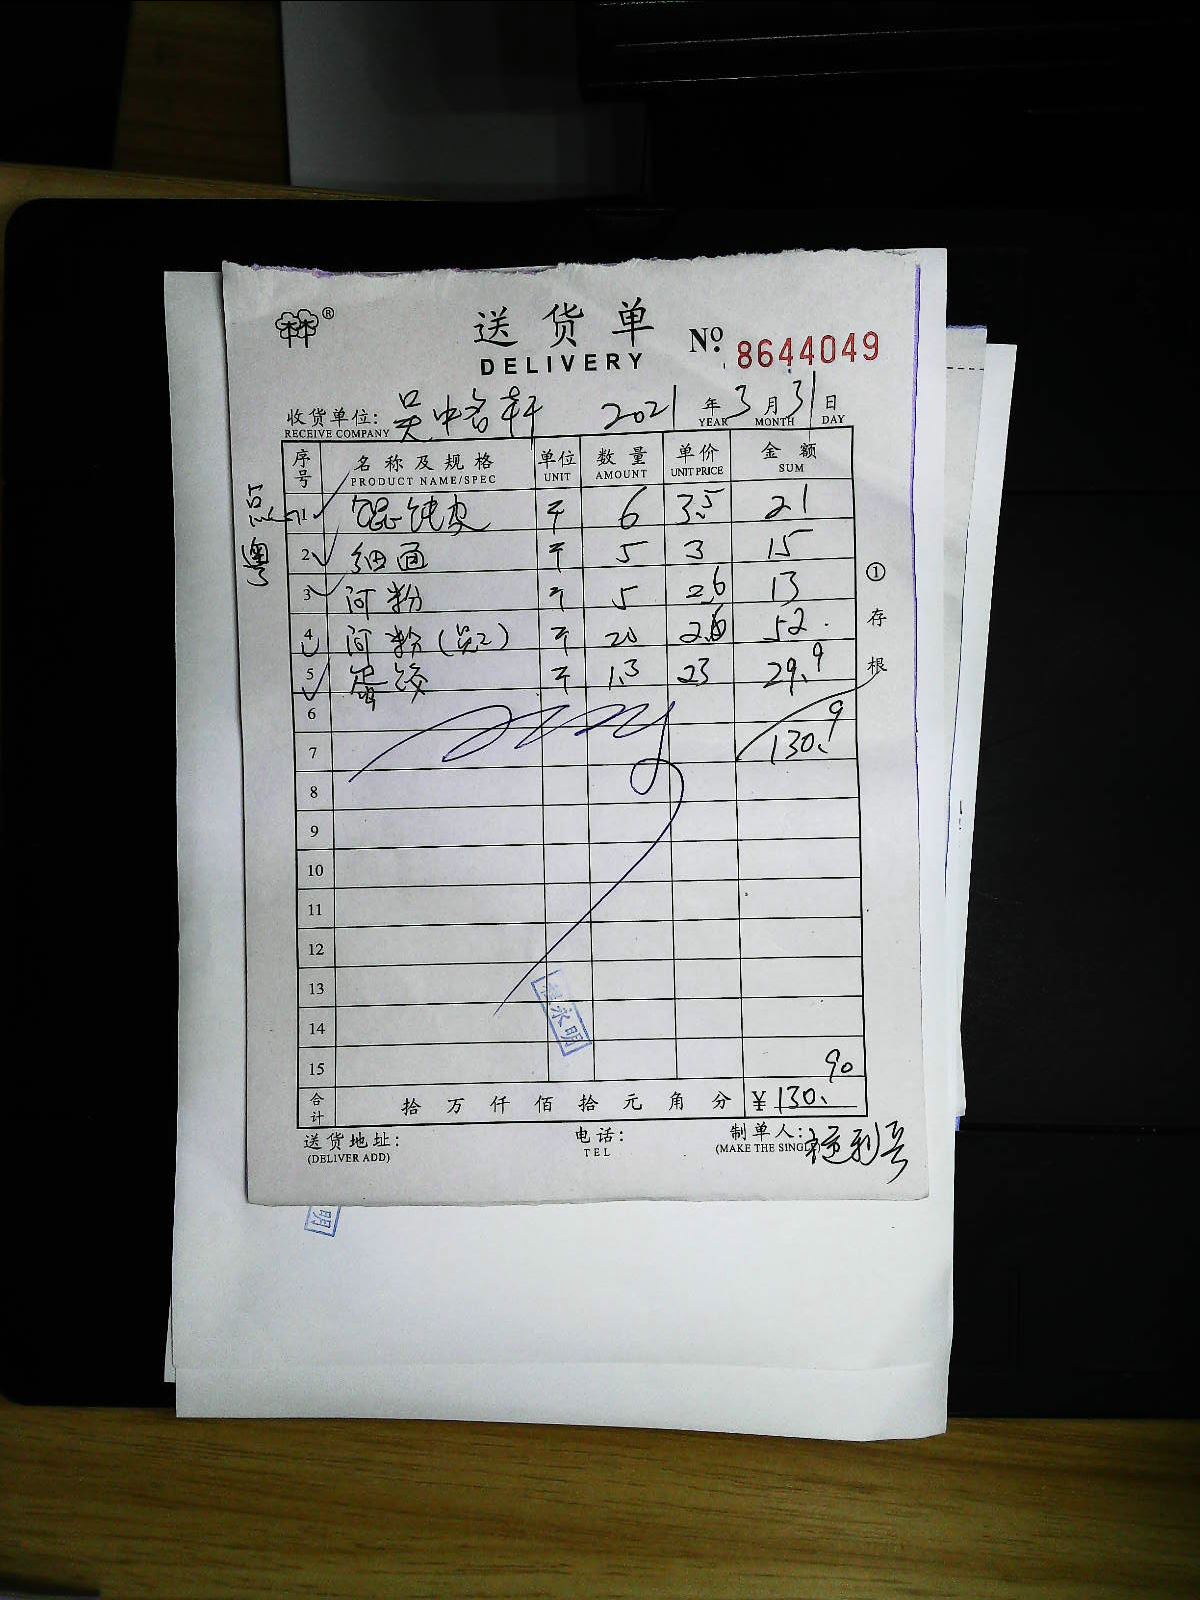 ®
送货单
DELIVERY
No. 8644049
收货单位: 吴中名轩 2021年3月31日
RECEIVE COMPANY YEAR MONTH DAY
序号 名称及规格 单位 数量 单价 金额
PRODUCT NAME/SPEC UNIT AMOUNT UNIT PRICE SUM
点
粤
1 馄饨皮 斤 6 3.5 21
2 细面 斤 5 3 15
3 河粉 斤 5 2.6 13
4 河粉 20 2.6 52.
5 蛋饺 斤 1.3 23 29.9
6
7 130.9
8
9
10
11
12
13
14
15
合计 拾万仟佰拾元角分 ¥130.90
①存根
永明
送货地址:
(DELIVER ADD)
电话:
TEL
制单人:
(MAKE THE SINGLE)
明